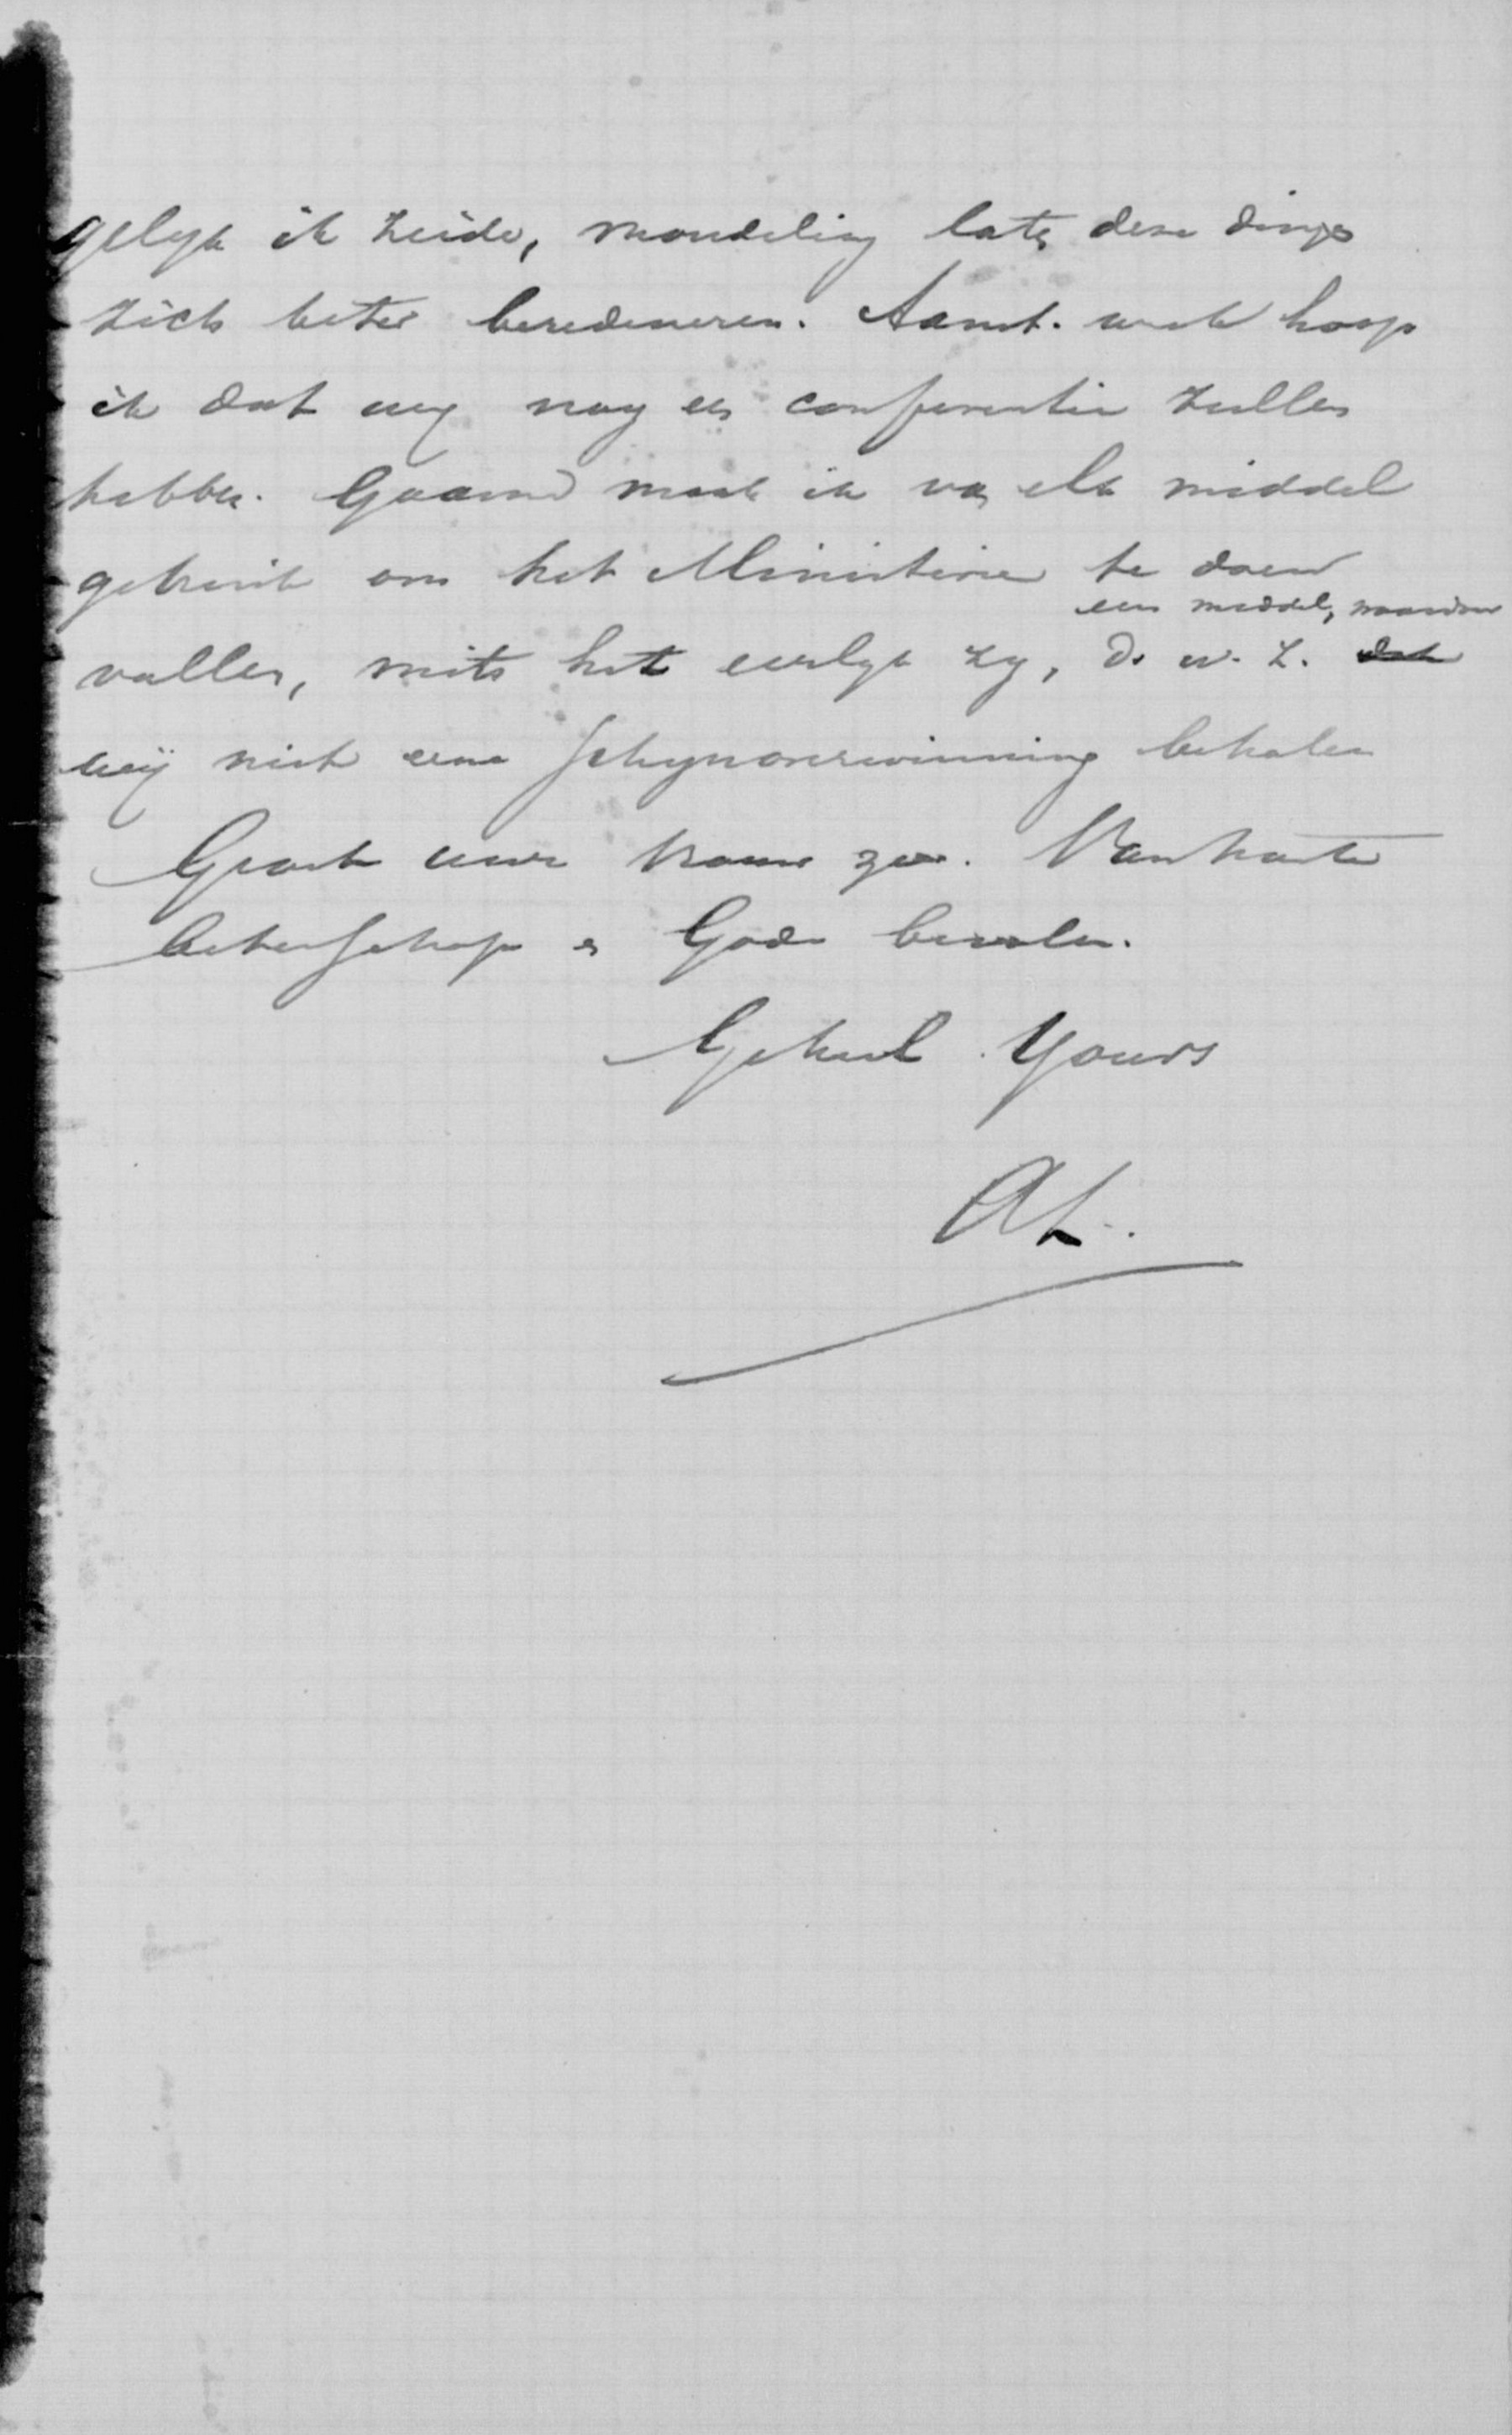 gelyk ik zeide, mondeling laten deze dingen
zich beter beredeneren. Aanst. week hoop
ik dat wy nog een conferentie zullen
hebben. Gaarne maak ik van elk middel
gebruik om het Ministerie te doen
een middel, waardoor
vallen, mits het eerlyk zy, d. w. z. dat
wij niet eene schynoverwinning behalen
Groet uwe vrouw zeer. Van harte
beterschap en Gode bevolen.
Geheel Yours
AL.